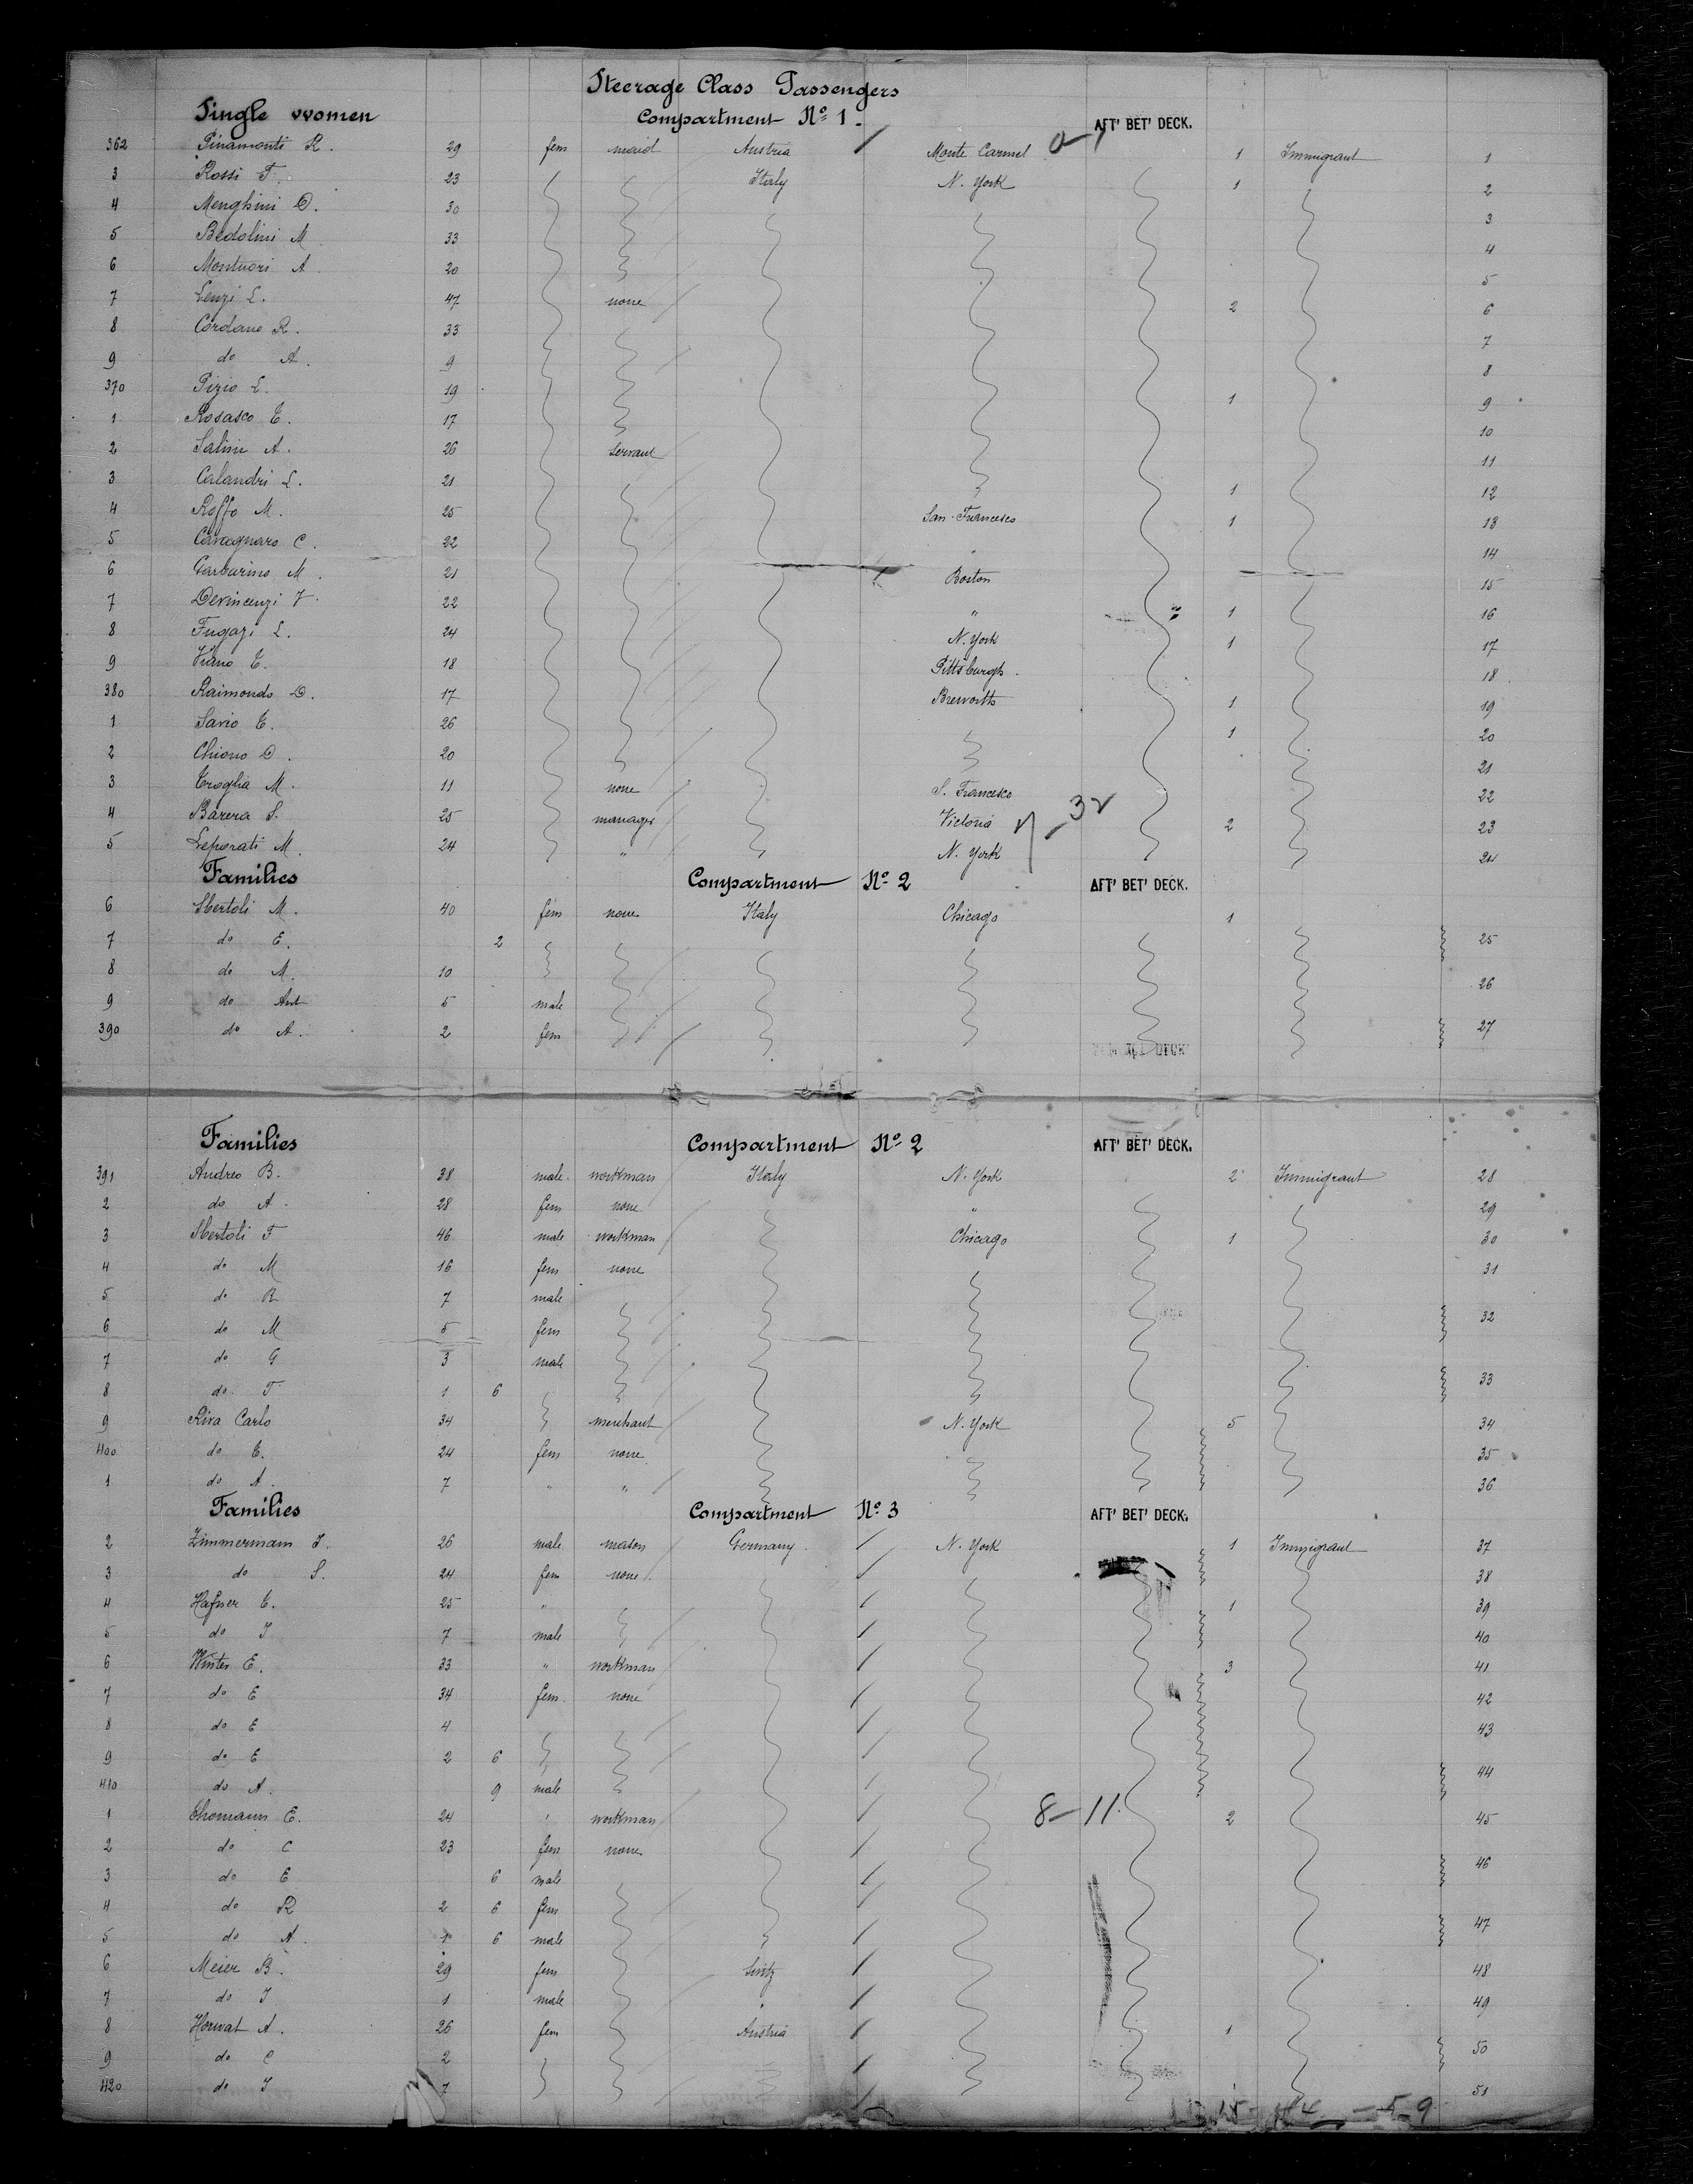 Steerage Class Passengers
Single women Compartment Nº 1. AFT' BET' DECK.
362 Pinamonti R. 29 fem maid Austria Monte Carmel 1 Immigrant 1
3 Rossi F. 23 Italy N. York 1 2
4 Menghini D. 30 3
5 Bedolini M 33 4
6 Montuori A 20 5
7 Lenzi L. 47 none 2 6
8 Cordano R. 33 7
9 do A. 9 8
370 Pizio L. 19 1 9
1 Rosasco E. 17 10
2 Salini A. 26 Servant 11
3 Calandri L. 21 1 12
4 Roffo M. 25 San-Francesco 1 13
5 Cavagnaro C. 22 " 14
6 Garbarino M. 21 Boston 15
7 Devincenzi V. 22 " 1 16
8 Fugazi L. 24 N. York 1 17
9 Viano E. 18 Pittsburgh. 18
380 Raimondo D. 17 1 19
1 Savio E. 26 1 20
2 Chiono D. 20 21
3 Troglia M. 11 none S. Francesco 22
4 Barera S. 25 manager Victoria 2 23
5 Leporati M. 24 " N. York 24
Families Compartment Nº 2 AFT' BET' DECK.
6 Sbertoli M. 40 fem none Italy Chicago 1
7 do E. 2 25
8 do M. 10 26
9 do Ant 5 male
390 do A. 2 fem 27
Families Compartment Nº 2 AFT' BET' DECK.
391 Andreo B. 38 male workman Italy N. York 2 Immigrant 28
2 do A. 28 fem none " 29
3 Sbertoli F 46 male workman Chicago 1 30
4 do M 16 fem none 31
5 do R 7 male
6 do M 5 fem 32
7 do G 3 male
8 do F 1 6 33
9 Riva Carlo 34 merchant N. York 5 34
400 do E. 24 fem none 35
1 do A 7 " " 36
Families Compartment Nº 3 AFT' BET' DECK.
2 Zimmermann J. 26 male mason Germany N. York 1 Immigrant 37
3 do S. 24 fem none 38
4 Hafner E. 25 " 1 39
5 do J 7 male 40
6 Winter E. 33 " workman 3 41
7 do E 34 fem none 42
8 do E 4 43
9 do E 2 6 44
410 do A. 9 male
8-11
1 Thomann E. 24 " workman 2 45
2 do C 23 fem none
3 do E 6 male 46
4 do R 2 6 fem
5 do A. 1 6 male 47
6 Meier B. 29 fem Switz 48
7 do J 1 male " 49
8 Horvat A. 26 fem Austria 1
9 do C 2 50
420 do J 7 51